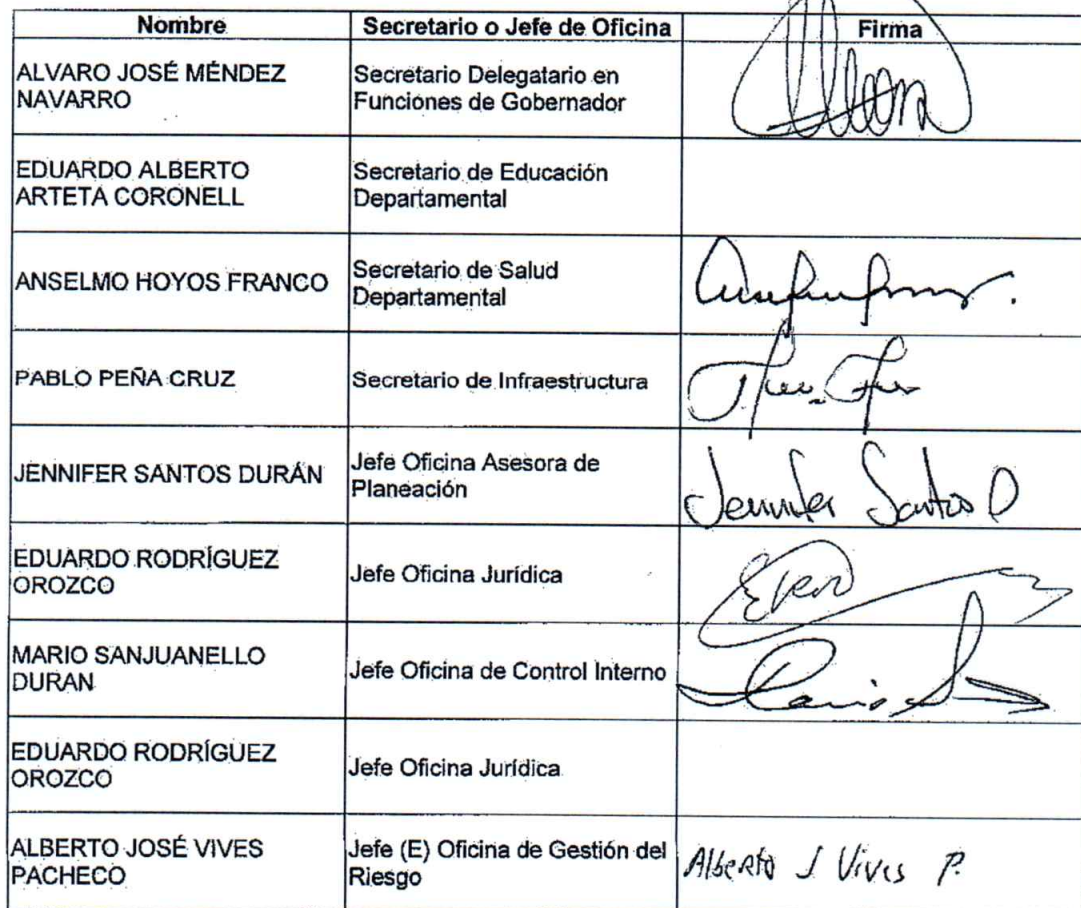 Nombre Secretario o Jefe de Oficina Firma
ALVARO JOSÉ MÉNDEZ Secretario Delegatario en
NAVARRO Funciones de Gobernador
EDUARDO ALBERTO Secretario de Educación
ARTETA CORONELL Departamental
ANSELMO HOYOS FRANCO Secretario de Salud
Departamental
PABLO PEÑA CRUZ Secretario de Infraestructura
JENNIFER SANTOS DURÁN Jefe Oficina Asesora de
Planeación
Jennifer Santos D
EDUARDO RODRÍGUEZ
OROZCO Jefe Oficina Jurídica
MARIO SANJUANELLO
DURAN Jefe Oficina de Control Interno
EDUARDO RODRÍGUEZ
OROZCO Jefe Oficina Jurídica
ALBERTO JOSÉ VIVES Jefe (E) Oficina de Gestión del
PACHECO Riesgo
Alberto J Vives P.